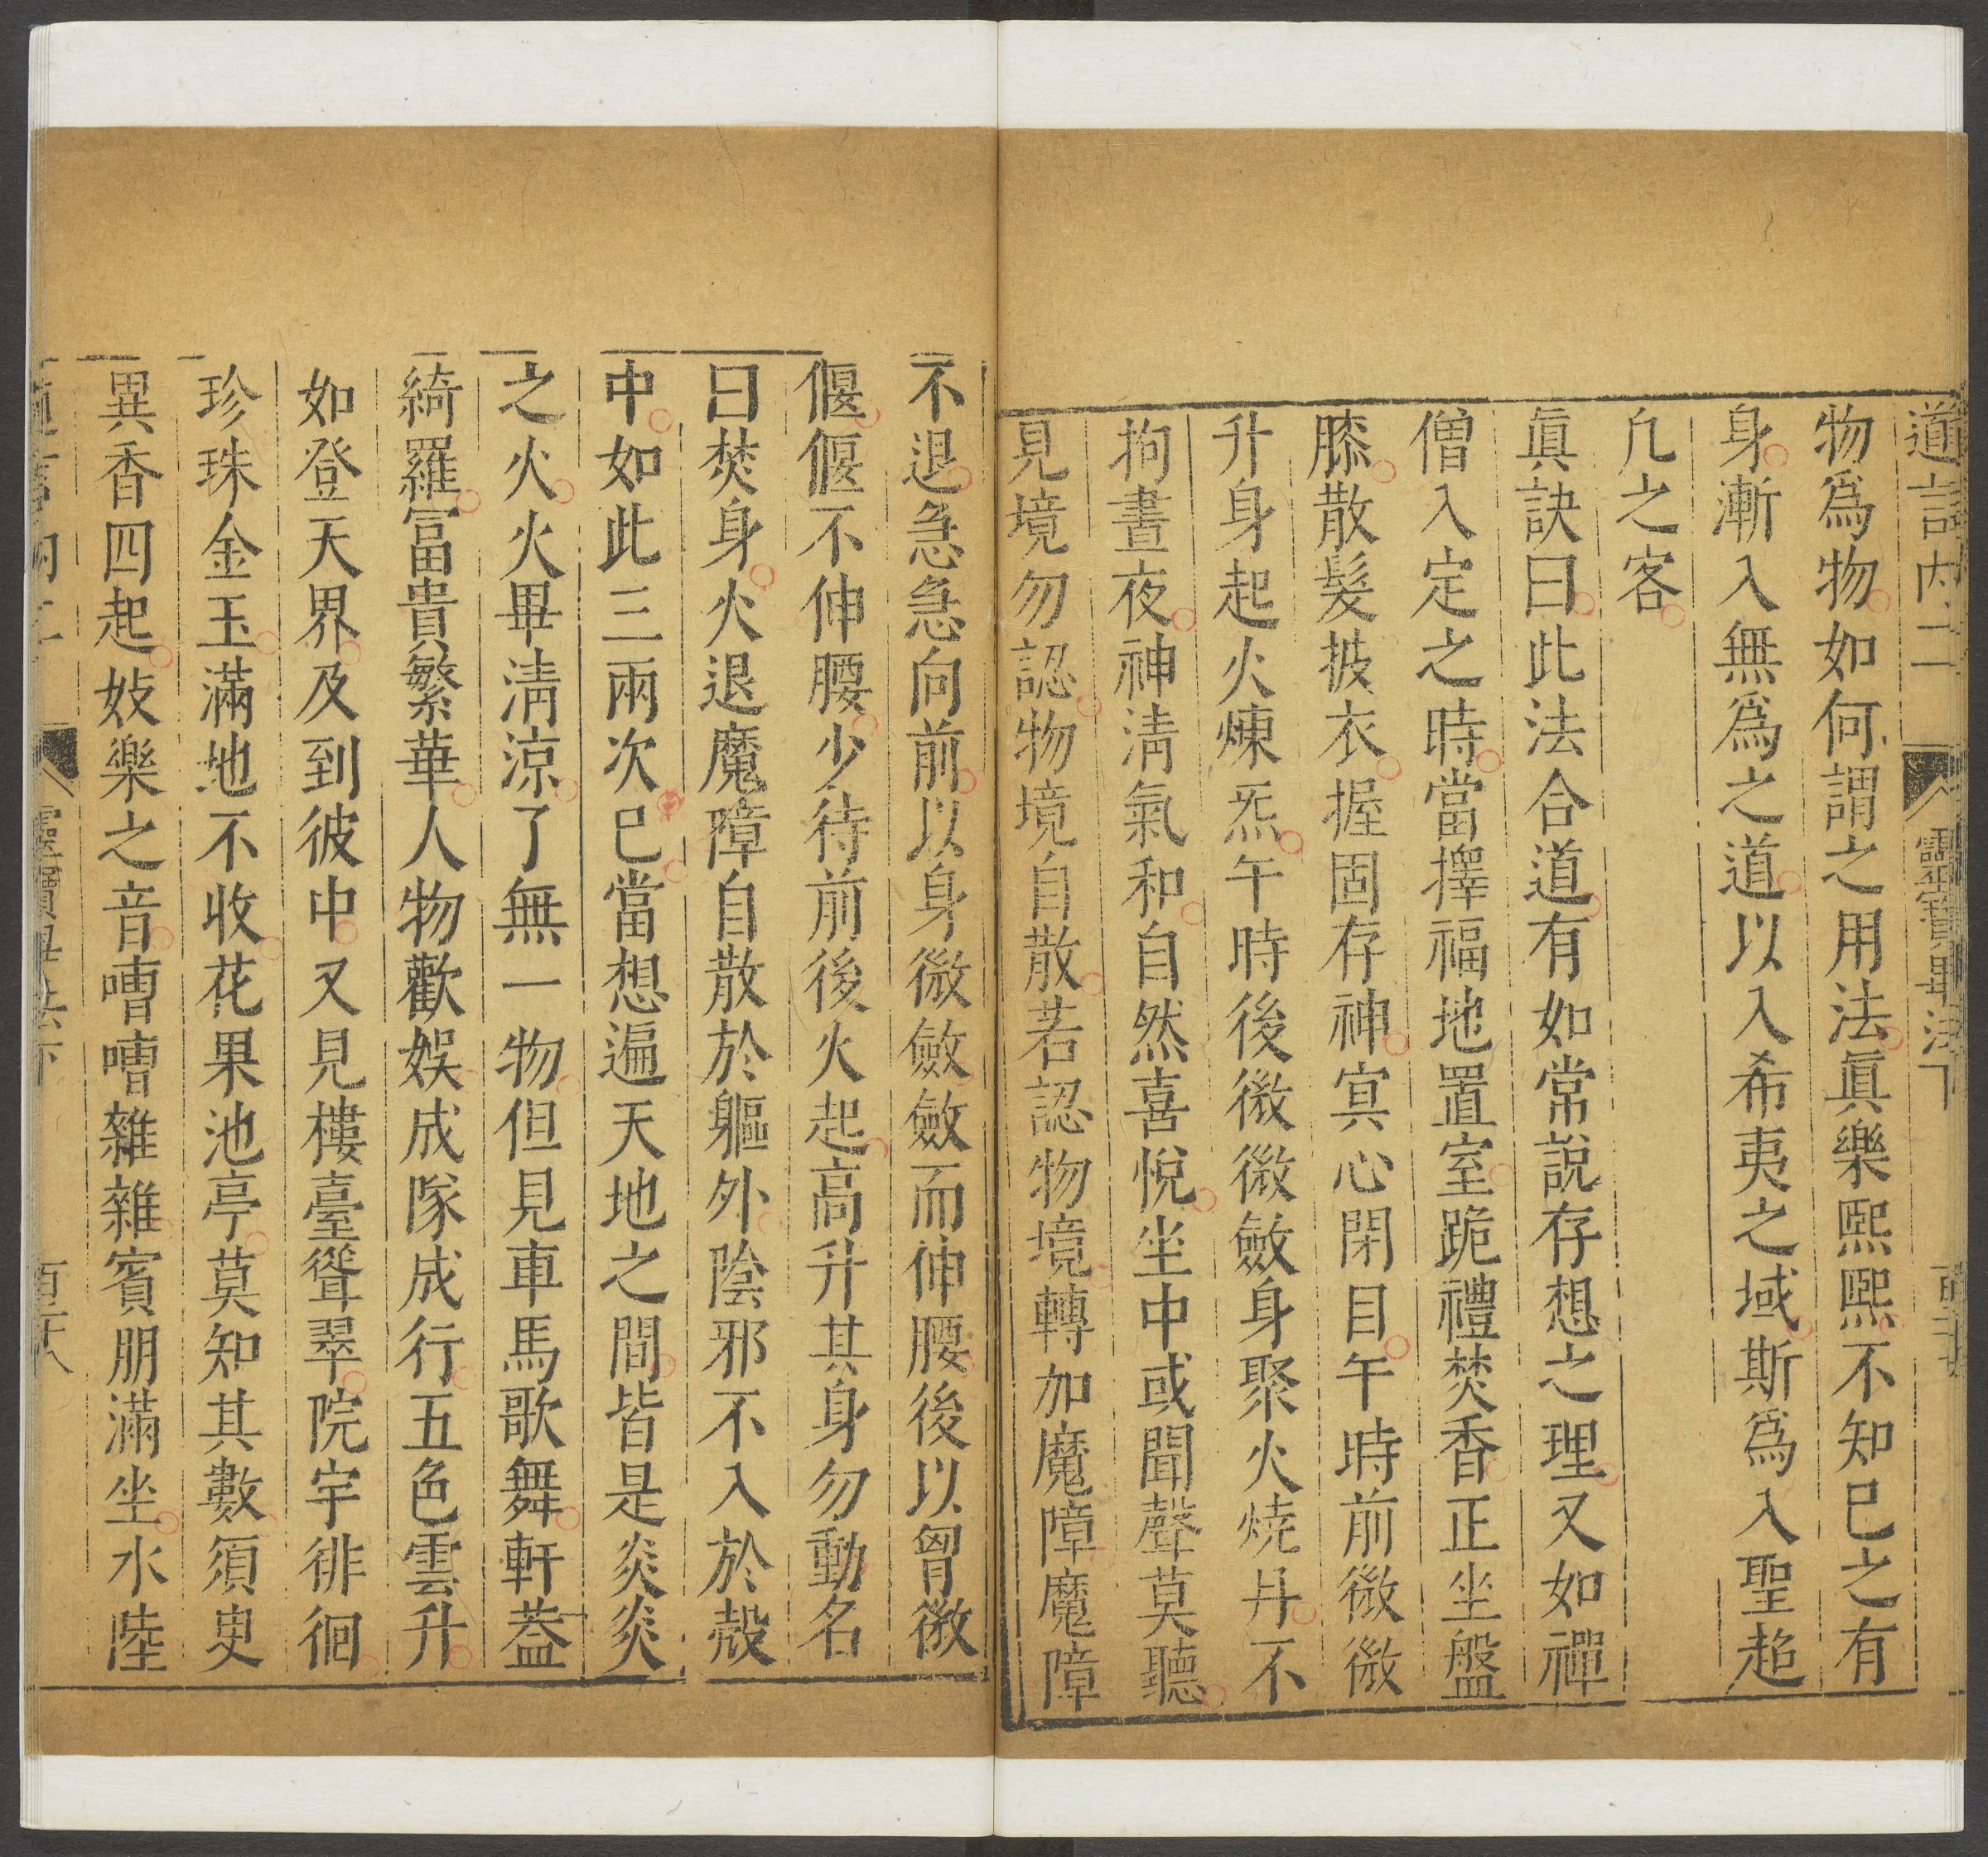 道言內二 靈寶畢法下
物爲物如何謂之用法眞樂熙熙不知巳之有
身漸入無爲之道以入希夷之域斯爲入聖超
凢之客
眞訣曰此法合道有如常說存想之理又如禪
僧入定之時當擇福地置室跪禮焚香正坐盤
膝散髮披衣握固存神㝠心閉目午時前微微
升身起火煉炁午時後微微斂身聚火燒丹不
拘晝夜神淸氣和自然喜悅坐中或聞聲莫聽
見境勿認物境自散若認物境轉加魔障魔障
不退急急向前以身微斂斂而伸腰後以胷微
偃偃不伸腰少待前後火起高升其身勿動名
曰焚身火退魔障自散於軀外陰邪不入於殼
中如此三兩次巳當想遍天地之間皆是炎炎
之火火畢淸涼了無一物但見車馬歌舞軒葢
綺羅富貴繁華人物歡娛成隊成行五色雲升
如登天界及到彼中又見樓臺聳翠院宇徘徊
珍珠金玉滿地不收花果池亭莫知其數須臾
異香四起妓樂之音嘈嘈雜雜賓朋滿坐水陸
道言內二 靈寶畢法下